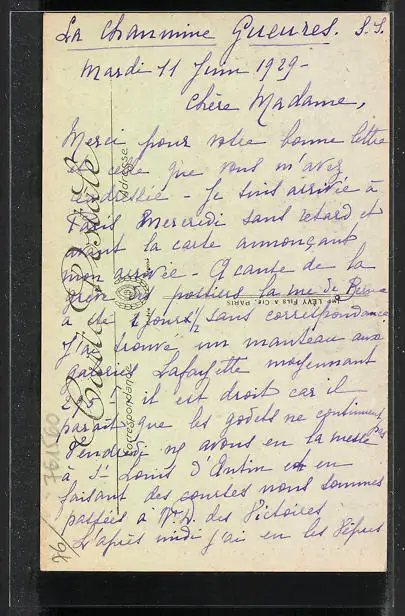 La Chaumine Gueures. S. I.
Mardi 11 Juin 1929 -
Chère Madame,
Merci pour votre bonne lettre
et celle que vous m'avez
Je suis arrivée à
Paris Mercredi sans retard et
avant la carte annonçant
mon arrivée - A cause de la
grève des postiers la rue de
à été 2 jours 1/2 sans correspondance
J'ai trouvé un manteau aux
galeries Lafayette moyennant
il est droit car il
parait que les godets ne continuent pas
Vendredi ns avons eu la messe
à St Louis d'Antin et en
faisant des courses nous sommes
passées à N. D. des Victoires
L'après midi j'ai eu les Vêpres
Carte Postale
Correspondance
Adresse
IMP. LÉVY FILS & CIE. PARIS
761560